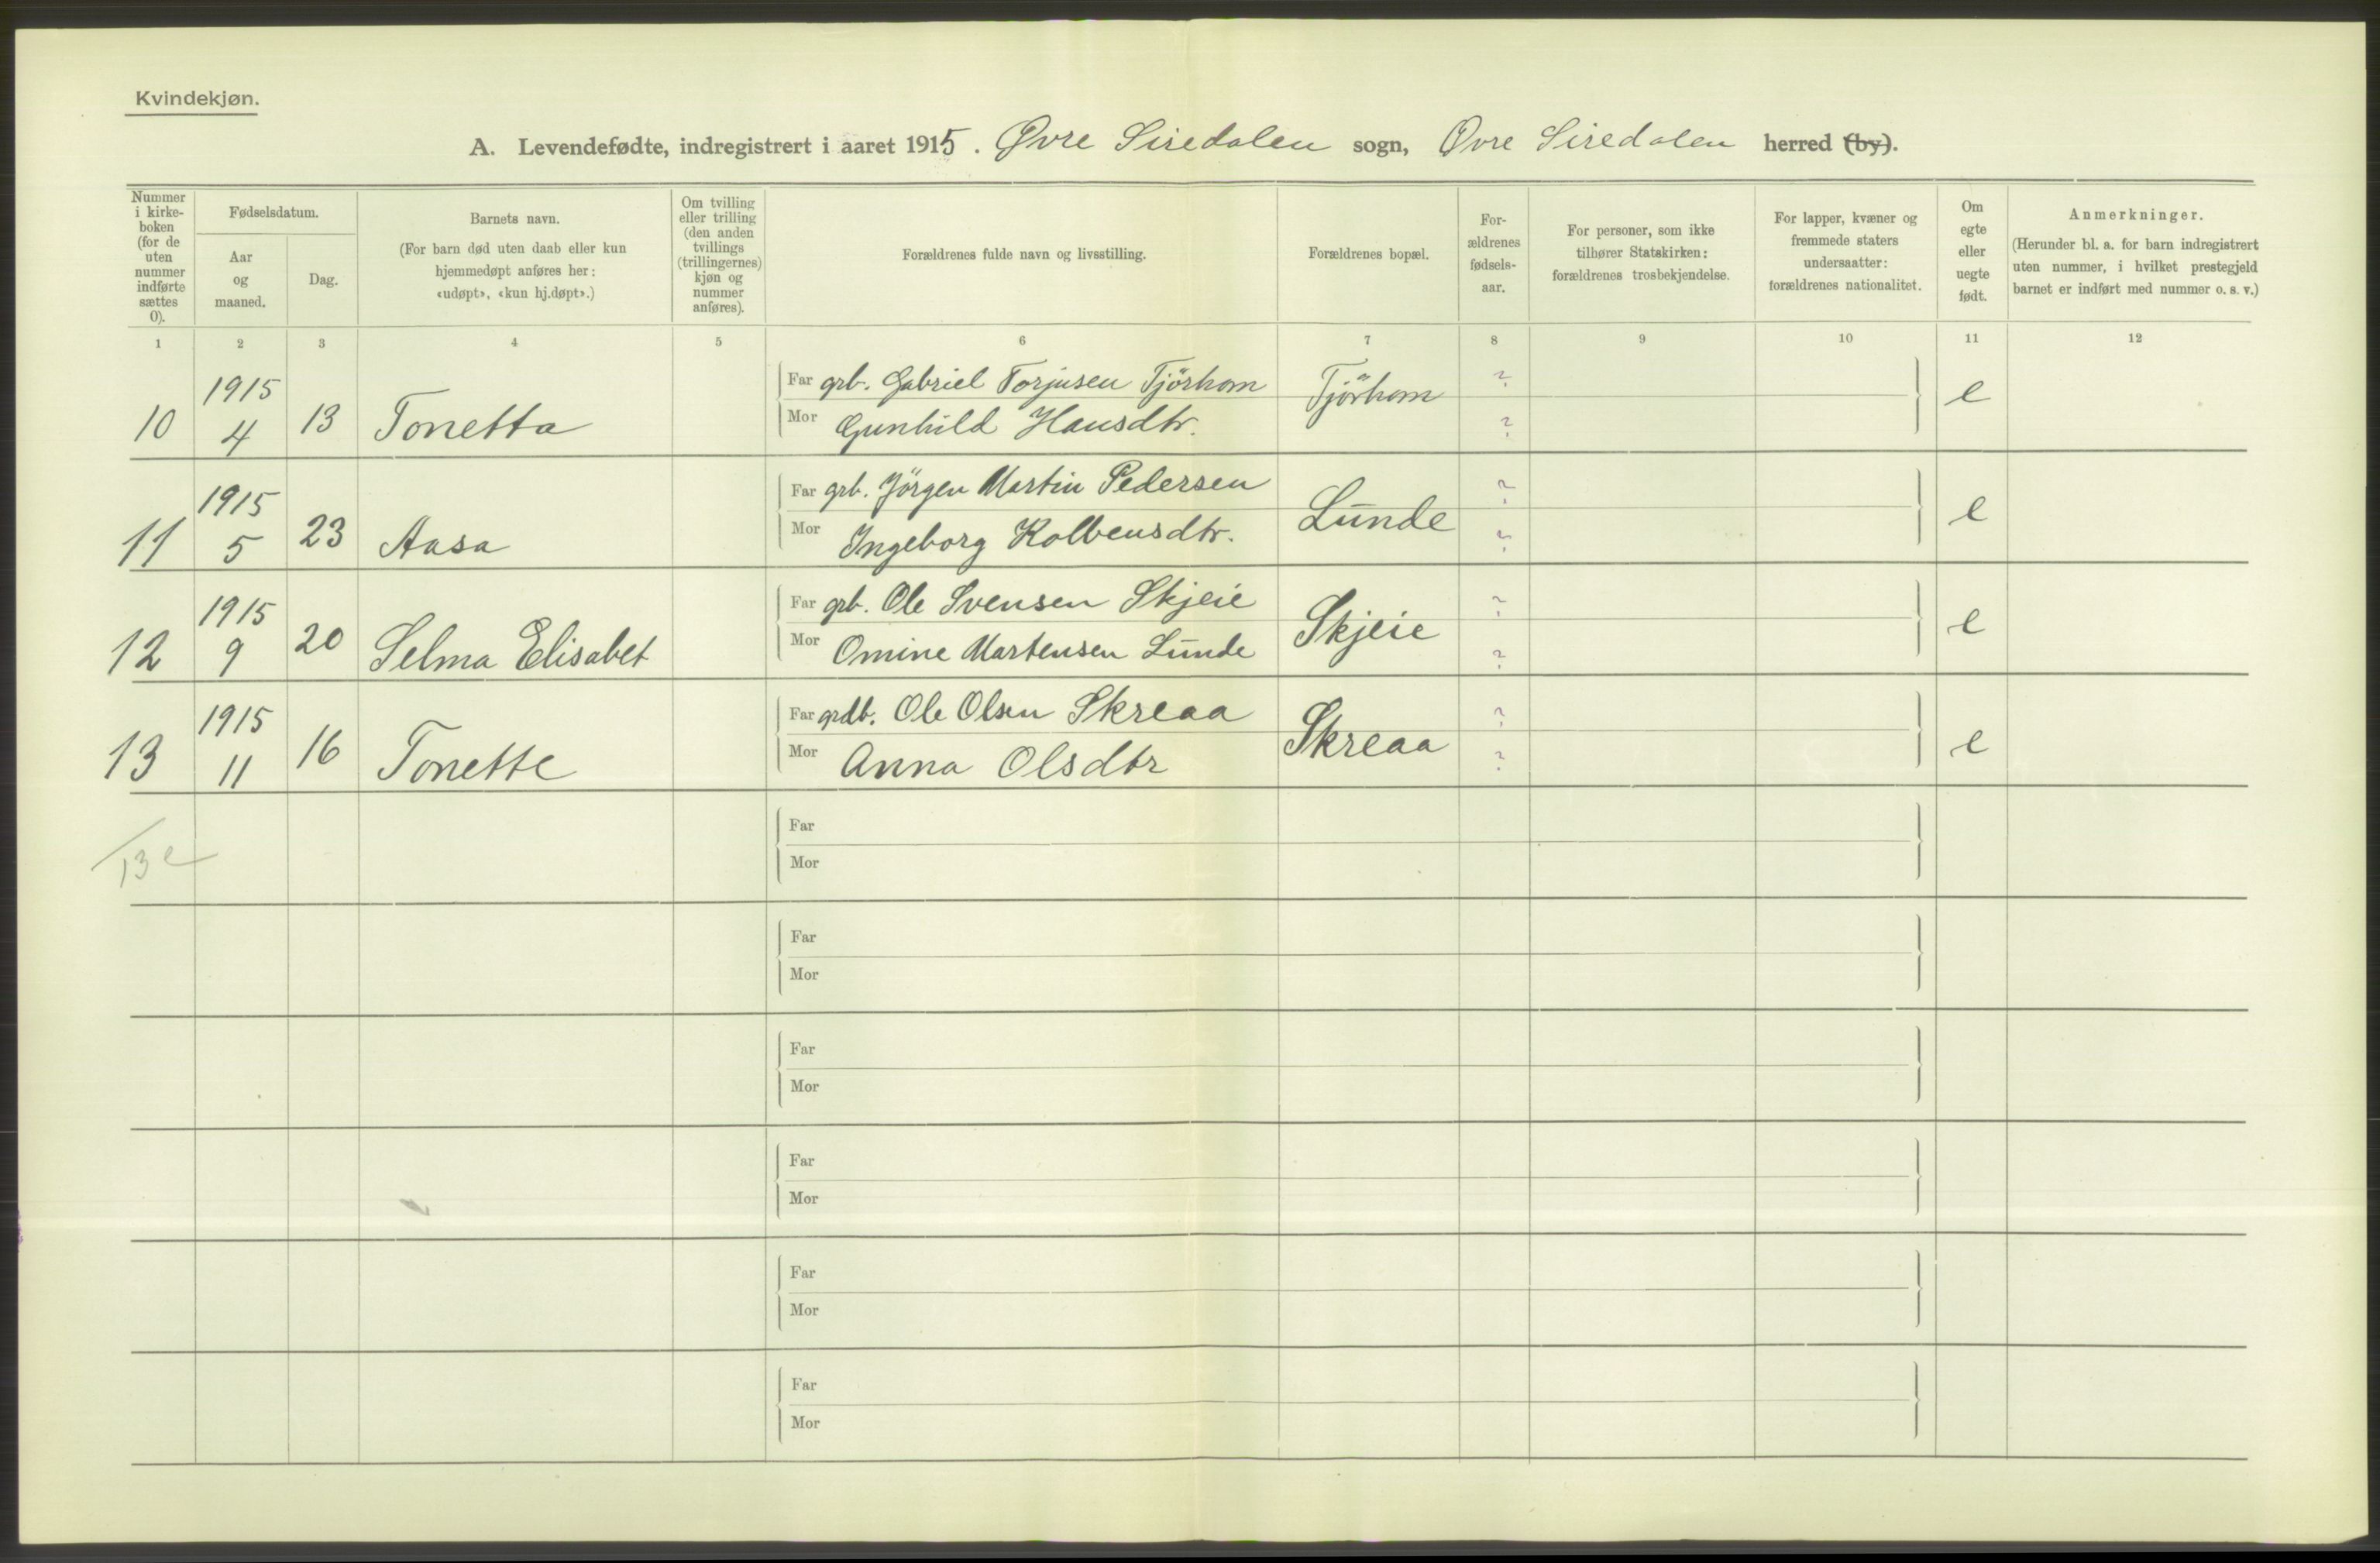 Kvindekjøn.
A. Levendefødte, indregistrert i aaret 1915. Øvre Siredalen sogn, Øvre Siredalen herred (by).
Nummer
i kirke-
boken
(for de
uten
nummer
indførte
sættes
0).
Fødselsdatum.
Aar
og
maaned.
Dag.
Barnets navn.
(For barn død uten daab eller kun
hjemmedøpt anføres her:
«udøpt», «kun hj.døpt».)
Om tvilling
eller trilling
(den anden
tvillings
(trillingernes)
kjøn og
nummer
anføres).
Forældrenes fulde navn og livsstilling.
Forældrenes bopæl.
For-
ældrenes
fødsels-
aar.
For personer, som ikke
tilhører Statskirken:
forældrenes trosbekjendelse.
For lapper, kvæner og
fremmede staters
undersaatter:
forældrenes nationalitet.
Om
egte
eller
uegte
født.
Anmerkninger.
(Herunder bl. a. for barn indregistrert
uten nummer, i hvilket prestegjeld
barnet er indført med nummer o. s. v.)
1 2 3 4 5 6 7 8 9 10 11 12
10 1915 4 13 Tonetta Far grb. Gabriel Torjusen Tjörhom Tjörhom ? e
Mor Gunhild Hansdtr. ?
11 1915 5 23 Aasa Far grb. Jörgen Martin Pedersen Lunde ? e
Mor Ingeborg Kolbensdtr. ?
12 1915 9 20 Selma Elisabet Far grb. Ole Svensen Skjeie Skjeie ? e
Mor Omine Martensen Lunde ?
13 1915 11 16 Tonette Far grdb. Ole Olsen Skreaa Skreaa ? e
Mor Anna Olsdtr ?
13 e
Far
Mor
Far
Mor
Far
Mor
Far
Mor
Far
Mor
Far
Mor